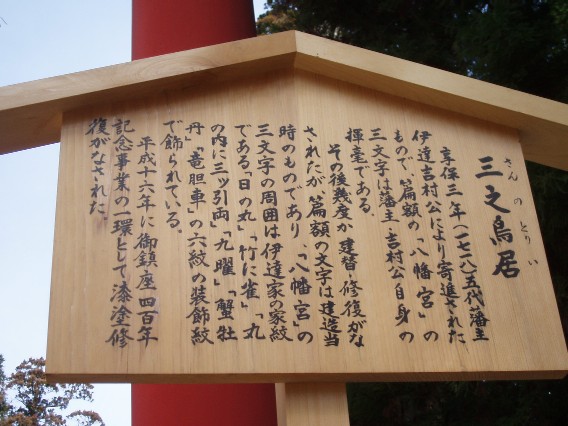 三之鳥居
さんのとりい
享保三年(一七一八)五代藩主
伊達吉村公により寄進された
もので、篇額の「八幡宮」の
三文字は藩主・吉村公自身の
揮毫である。
その後幾度か建替・修復がな
されたが篇額の文字は建造当
時のものであり、「八幡宮」の
三文字の周囲は伊達家の家紋
である「日の丸」「竹に雀」「丸
の内に三ッ引両」「九曜」「蟹牡
丹」「竜胆車」の六紋の装飾紋
で飾られている。
平成十六年に御鎮座四百年
記念事業の一環として漆塗修
復がなされた。